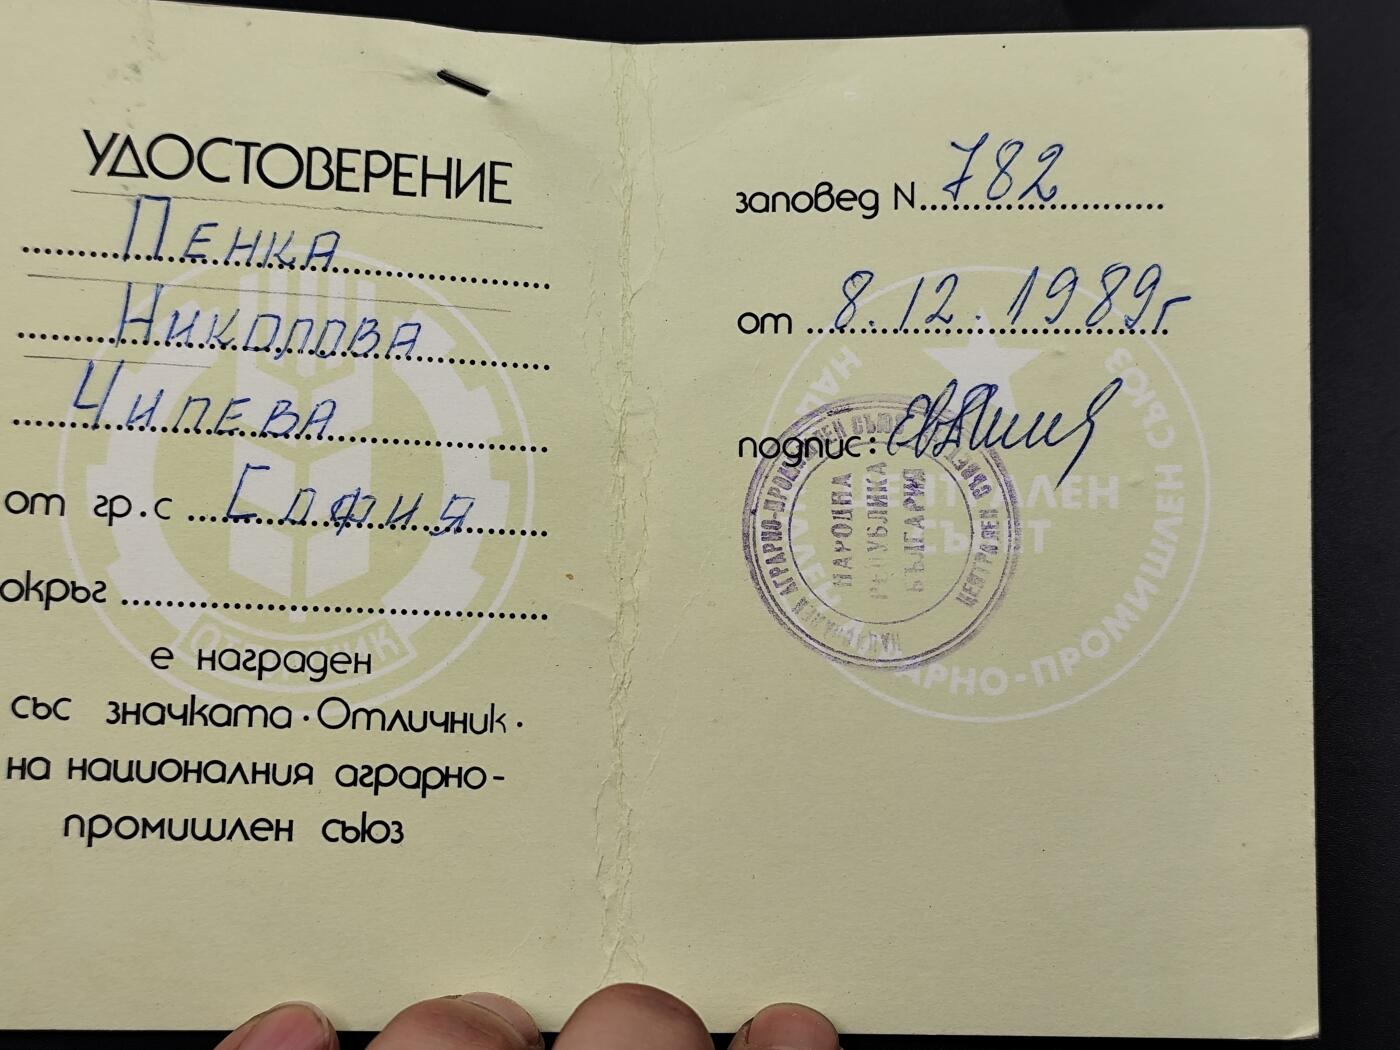 УДОСТОВЕРЕНИЕ
ПЕНКА
НИКОЛОВА
ЧИПЕВА
от гр.с София
окръг
е награден
със значката · Отличник ·
на националния аграрно-
промишлен съюз
ОТЛИЧНИК
заповед N 782
от 8.12.1989г
подпис:
НАРОДНА
РЕПУБЛИКА
БЪЛГАРИЯ
НАЦИОНАЛЕН АГРАРНО-ПРОМИШЛЕН СЪЮЗ
ЦЕНТРАЛЕН СЪВЕТ
ЦЕНТРАЛЕН
СЪВЕТ
АГРАРНО-ПРОМИШЛЕН СЪЮЗ